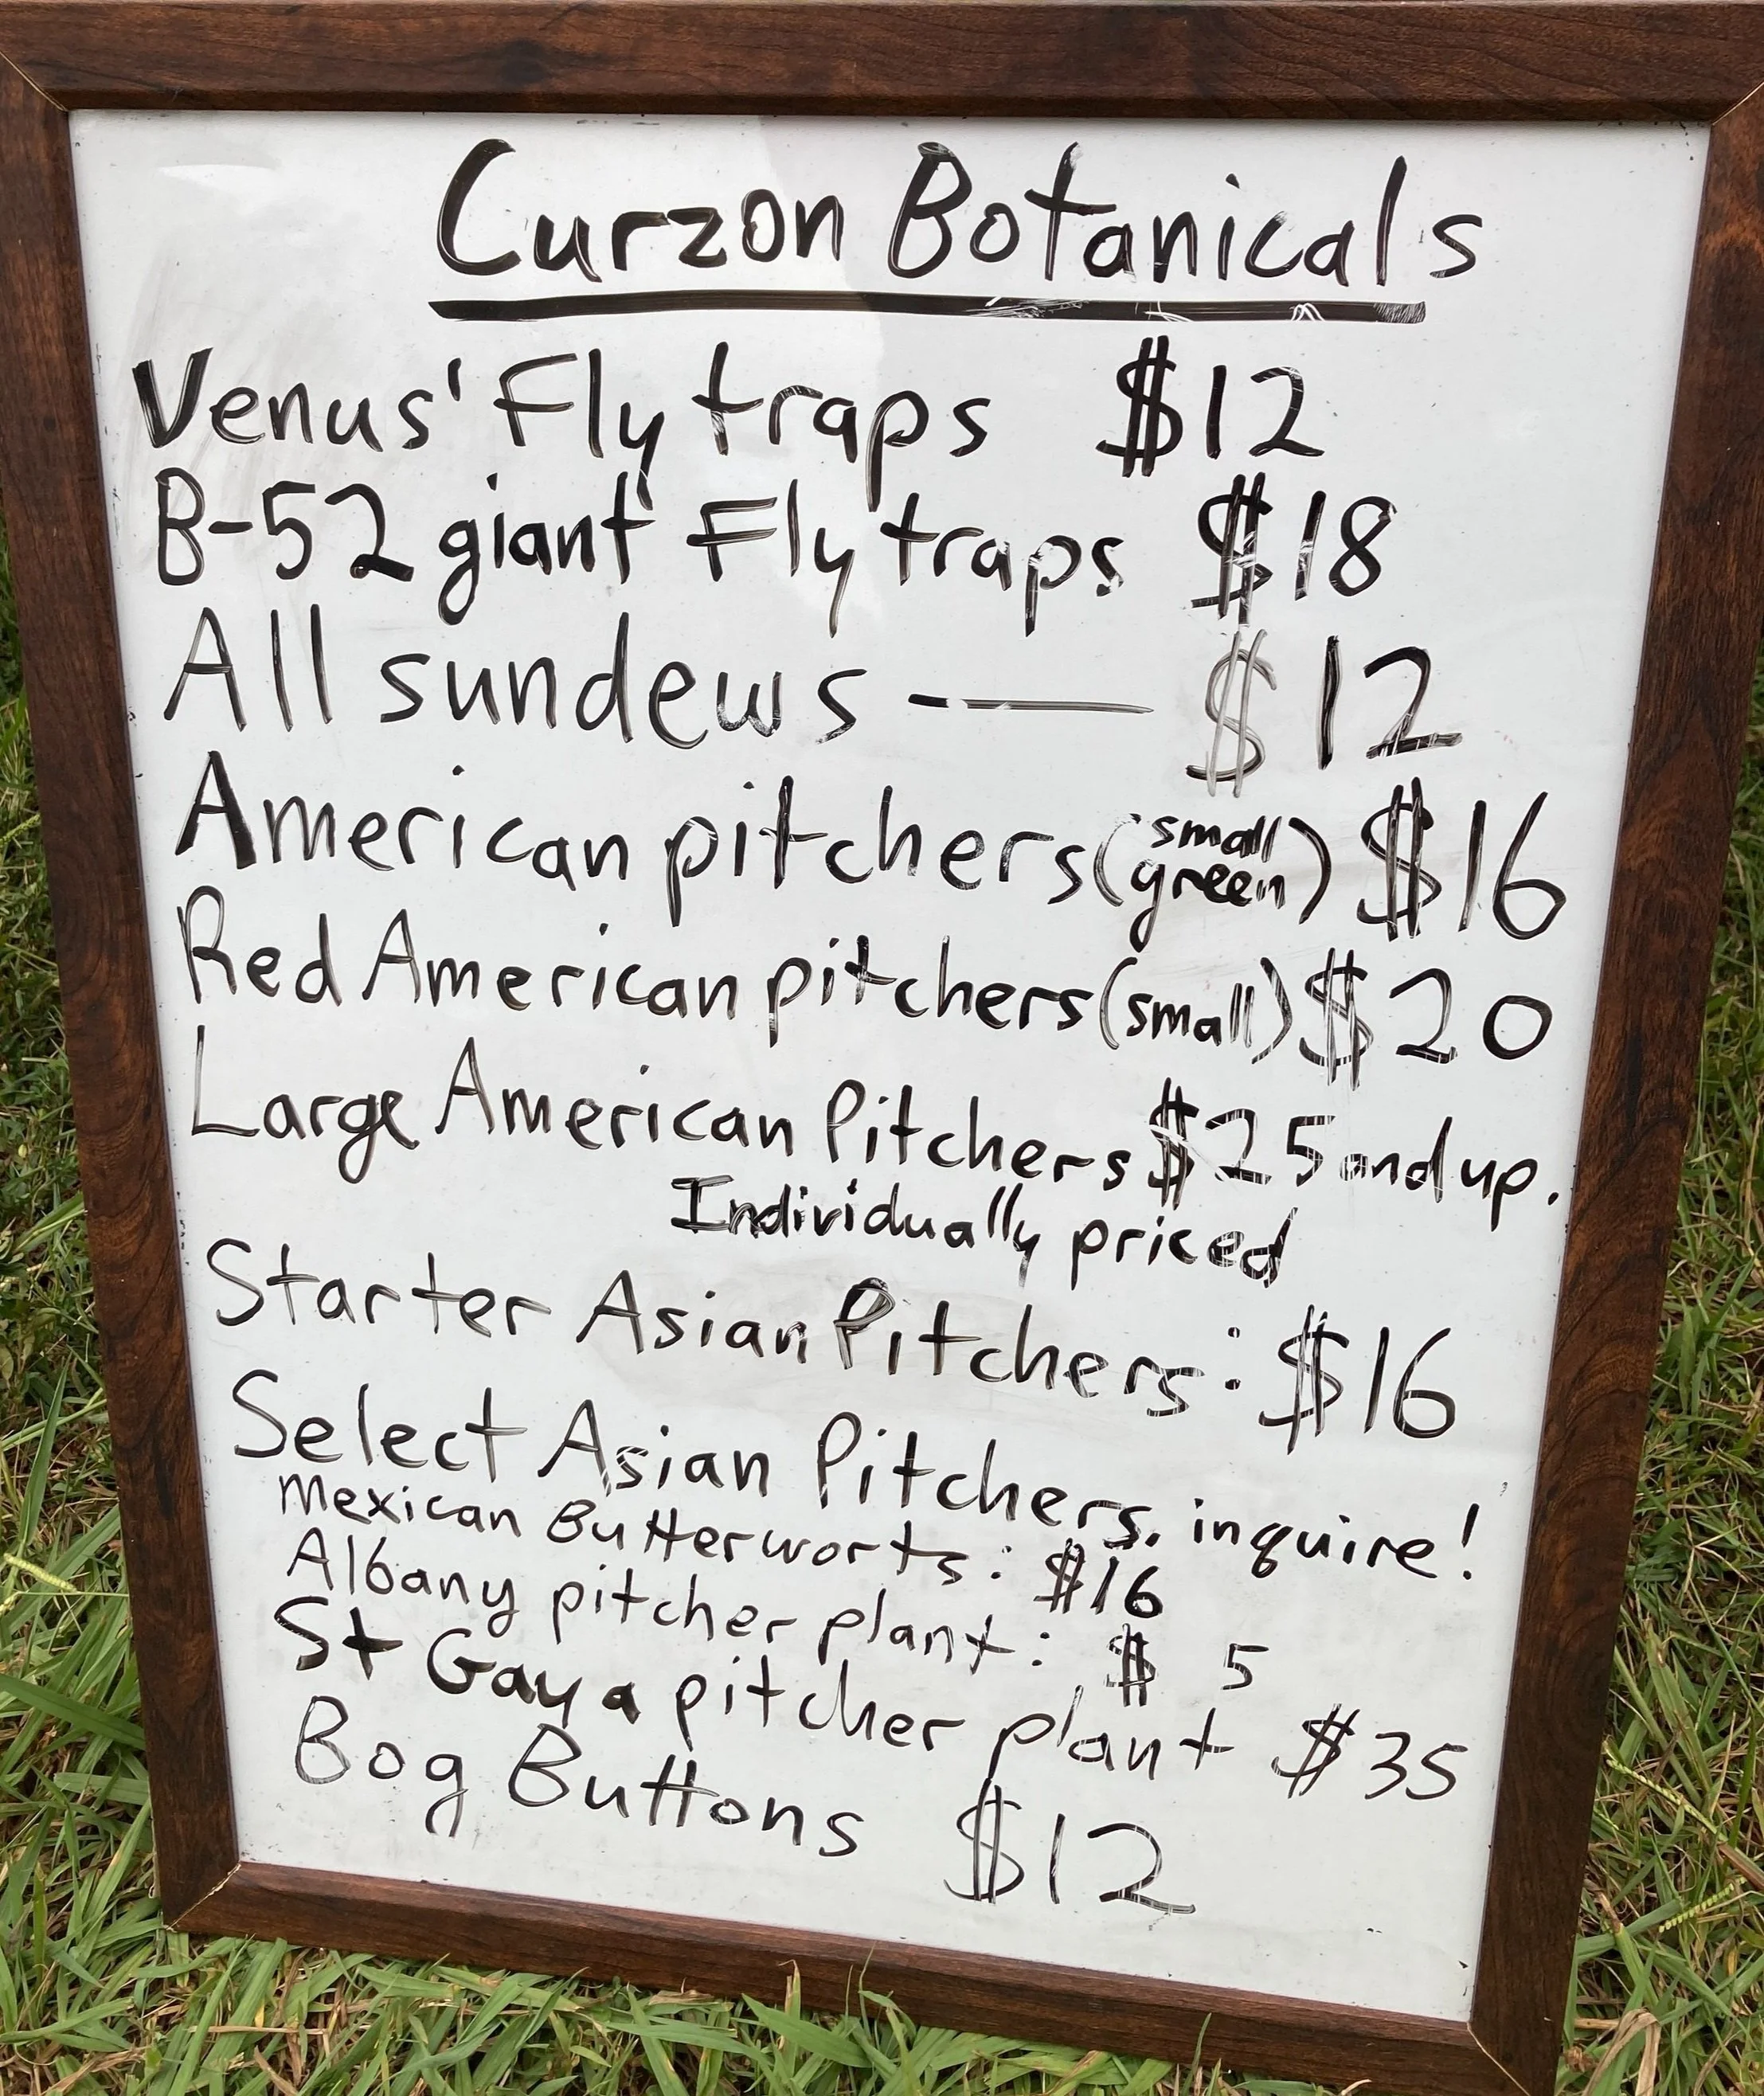 Curzon Botanicals
Venus' Fly traps $12
B-52 giant Fly traps $18
All sundews - — $12
American pitchers (small green) $16
Red American pitchers (small) $20
Large American Pitchers $25 and up.
Individually priced
Starter Asian Pitchers: $16
Select Asian Pitchers. inquire!
Mexican Butterworts: $16
Albany pitcher plant: $ 5
St Gaya pitcher plant $35
Bog Buttons $12